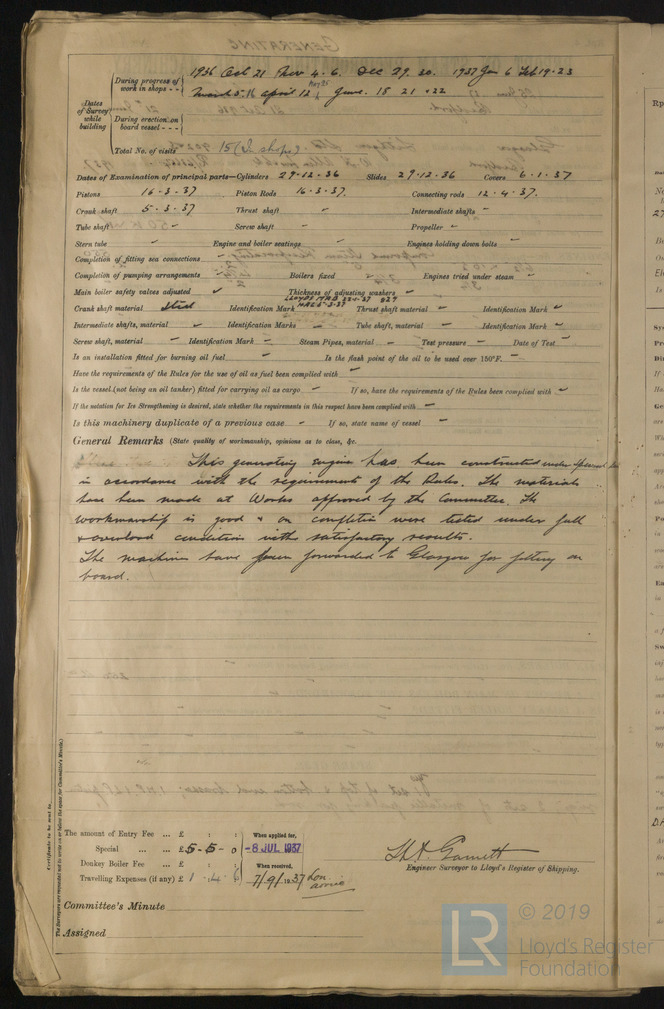 During progress of work in shops - - 1936 Oct 21 Nov 4 . 6. Dec 29. 30. 1937 Jan 6 Feb 19 . 23
March 5. 16 April 12 June. 18 21 . 22
Dates of Survey while building
During erection on board vessel - - -
Total No. of visits 15 (In shops).
Dates of Examination of principal parts—Cylinders 29 . 12 . 36 Slides 29 . 12 . 36 Covers 6 . 1 . 37
Pistons 16 . 3 . 37 Piston Rods 16 . 3 . 37. Connecting rods 12 . 4 . 37.
Crank shaft 5 . 3 . 37 Thrust shaft - Intermediate shafts -
Tube shaft - Screw shaft - Propeller -
Stern tube - Engine and boiler seatings - Engines holding down bolts -
Completion of fitting sea connections -
Completion of pumping arrangements - Boilers fixed - Engines tried under steam -
Main boiler safety valves adjusted - Thickness of adjusting washers -
Crank shaft material Steel Identification Mark LLOYDS Thrust shaft material - Identification Mark -
Intermediate shafts, material - Identification Marks - Tube shaft, material - Identification Mark -
Screw shaft, material - Identification Mark - Steam Pipes, material - Test pressure - Date of Test -
Is an installation fitted for burning oil fuel - Is the flash point of the oil to be used over 150°F. -
Have the requirements of the Rules for the use of oil as fuel been complied with -
Is the vessel (not being an oil tanker) fitted for carrying oil as cargo - If so, have the requirements of the Rules been complied with -
If the notation for Ice Strengthening is desired, state whether the requirements in this respect have been complied with -
Is this machinery duplicate of a previous case - If so, state name of vessel -
General Remarks (State quality of workmanship, opinions as to class, &c.
This generating engine has been constructed under
in accordance with the requirements of the Rules. The materials
have been made at Works approved by the Committee. The
workmanship is good & on completion were tested under full
& overload condition with satisfactory results.
The machines have been forwarded to Glasgow for fitting on
board.
Certificate to be sent to
The Surveyors are requested not to write on or below the space for Committee's Minute.
The amount of Entry Fee ... £ : : When applied for,
Special ... ... £ 5 - 5 - 0 -8 JUL 1937
Donkey Boiler Fee ... £ : : When received,
Travelling Expenses (if any) £ 1 . 4 . 6 7/9/1937
Engineer Surveyor to Lloyd's Register of Shipping.
Committee's Minute
Assigned
LR © 2019
Lloyd's Register
Foundation